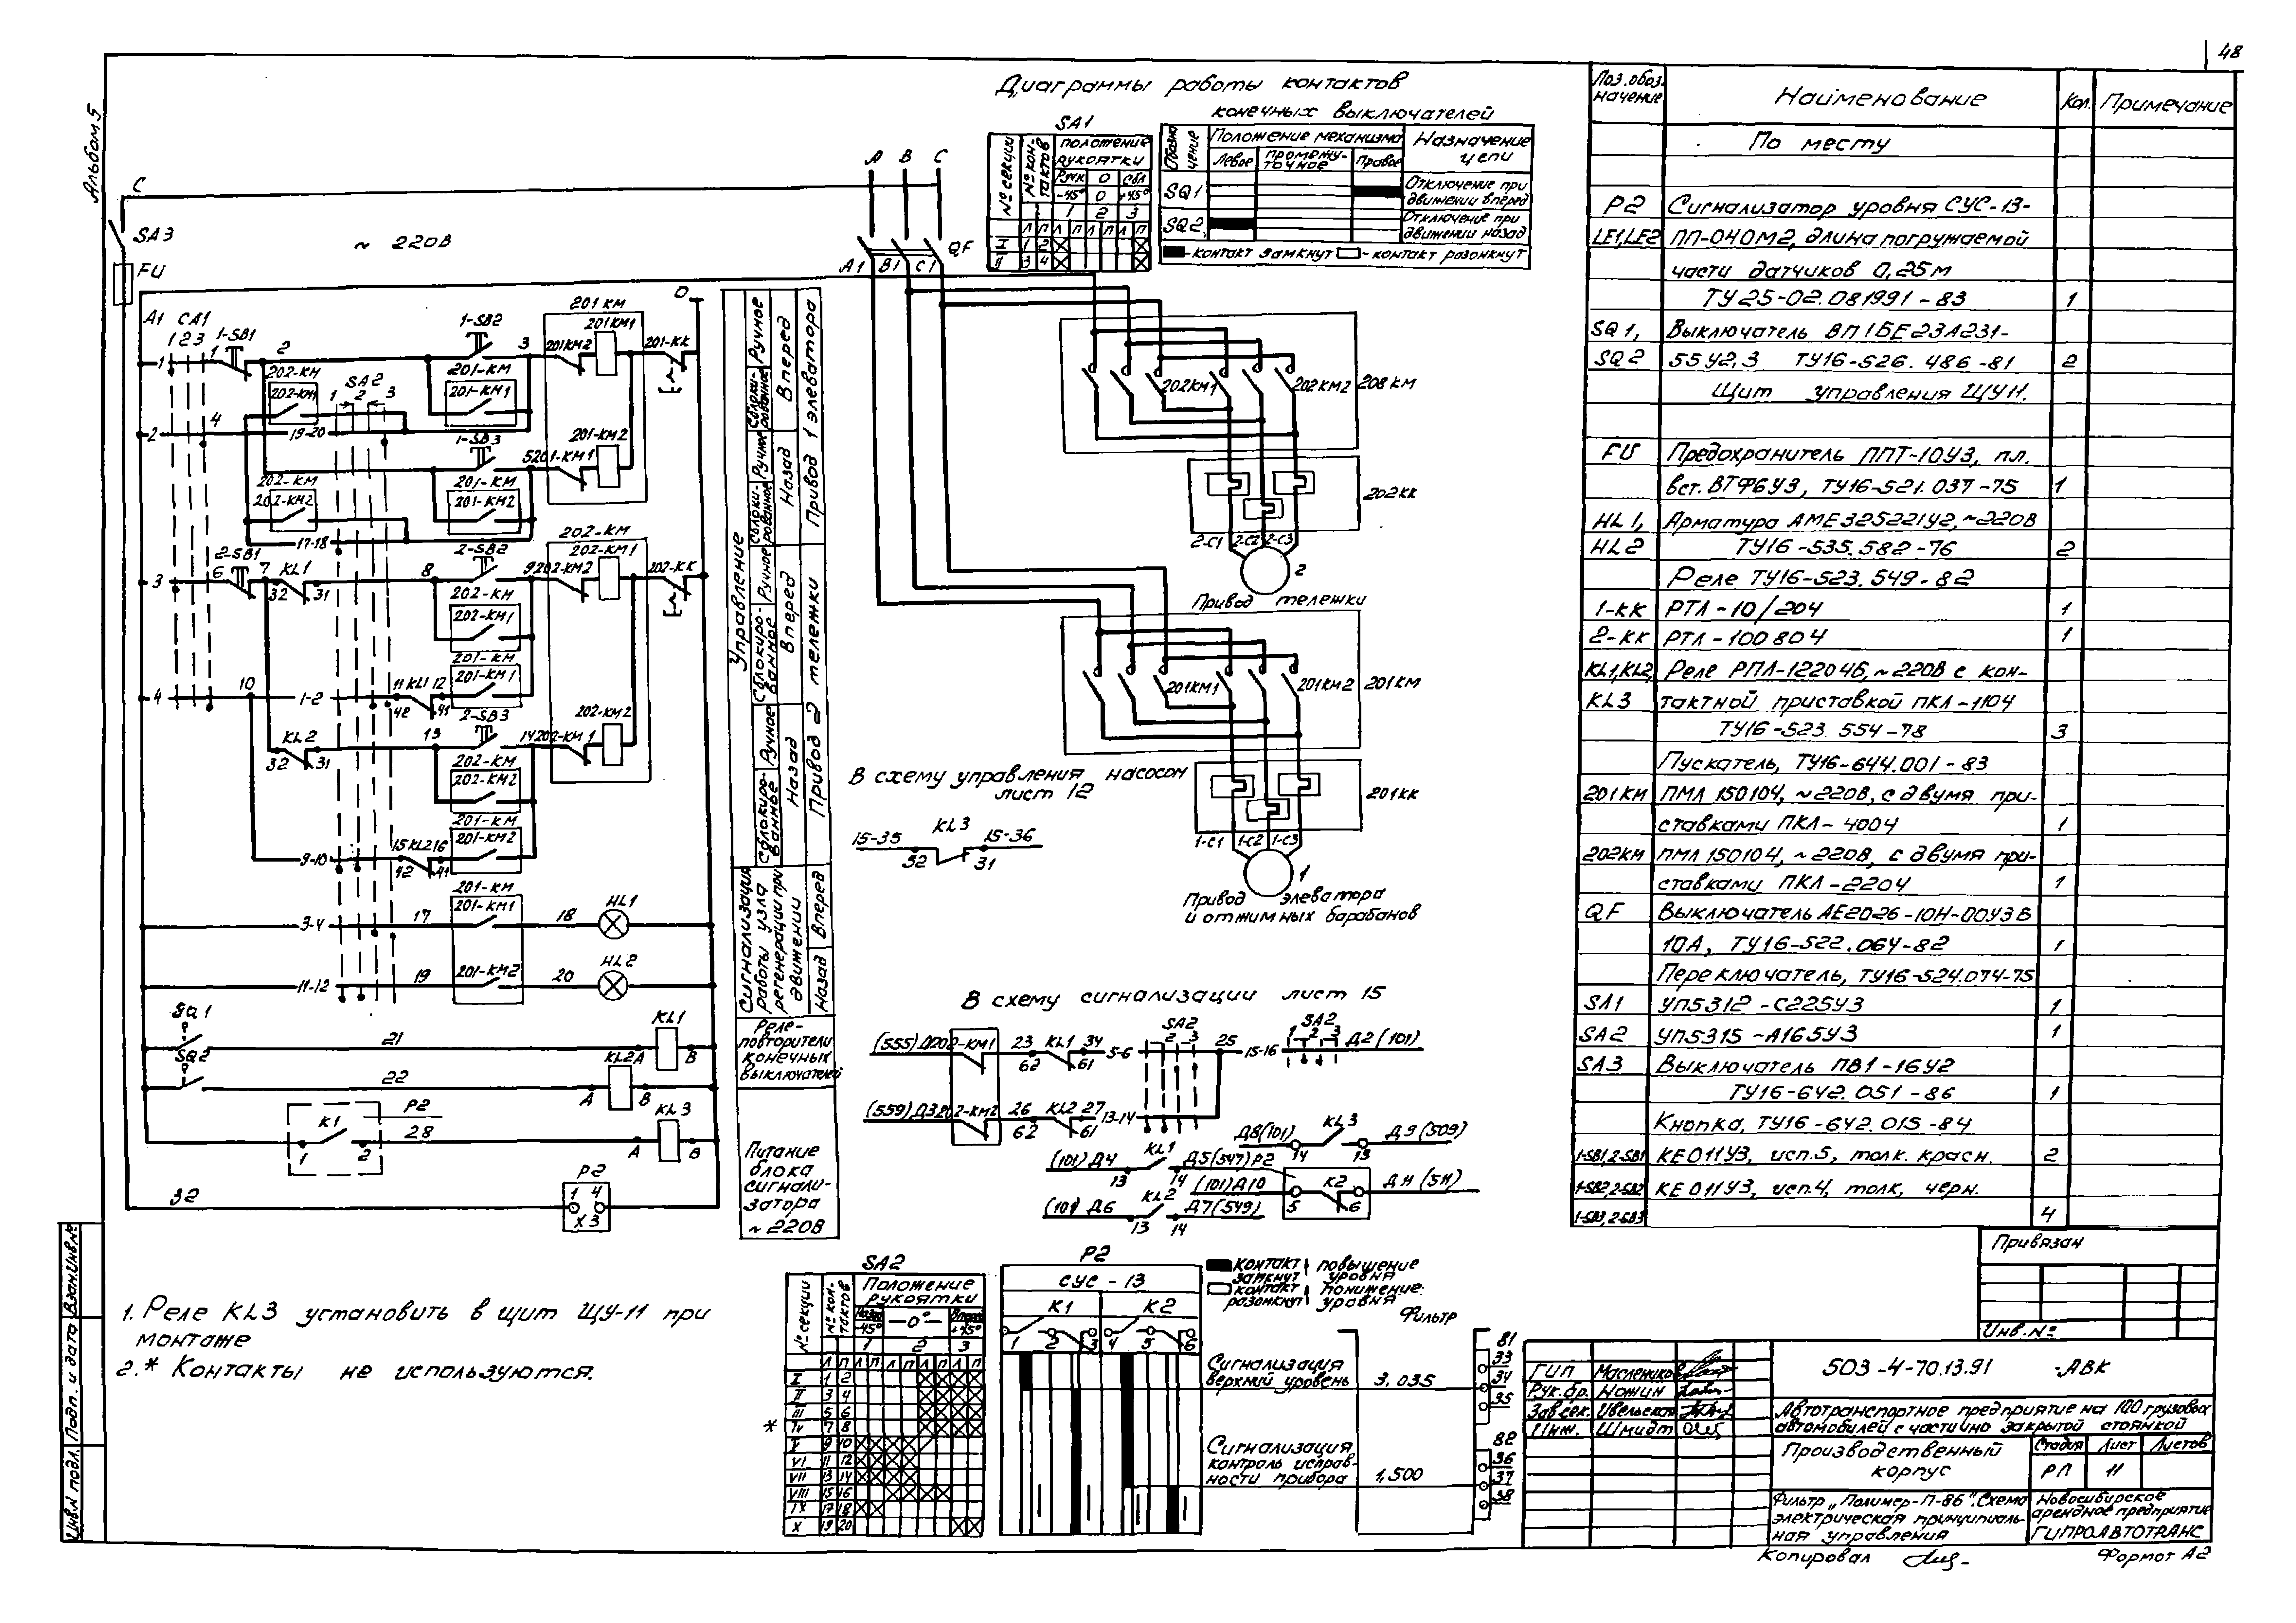 48
Альбом 5
Диаграммы работы контактов
конечных выключателей
SA1
№ секции
№ контактов
положение рукоятки
Ручн 0 Сбл
-45° 0 +45°
1 2 3
Л П Л П Л П Л П
I 1 2
II 3 4
Положение механизма
Назначение цепи
Левое
промежуточное
Правое
SQ1
Отключение при движении вперед
SQ2
Отключение при движении назад
- контакт замкнут - контакт разомкнут
A B C
C
SA3
~ 220В
FU
QF
A1 B1 C1
0
A1 СА1
1 2 3
1 1 1-SB1 2 1-SB2 3
201 КМ
201КМ2 201КМ1 201-КК
202-КМ
202-КМ1
SA2
1 2 3
201-КМ
201-КМ1
2 4 19-20
1-SB3
5 201-КМ1 201-КМ2
202-КМ
202-КМ2
201-КМ
201-КМ2
17-18
202-КМ
2-SB1 2-SB2
3 6 7 KL1 8 9 202-КМ2 202-КМ1 202-КК
32 31
202-КМ
202-КМ1
201-КМ
201-КМ1
4 10 1-2 11 KL1 12
42 41
2-SB3
KL2 13 14 202-КМ1 202-КМ2
32 31
202-КМ
202-КМ2
201-КМ
201-КМ2
9-10 15 KL2 16
42 41
201-КМ
3-4 17 201-КМ1 18 HL1
11-12 19 201-КМ2 20 HL2
SQ1 21 KL1
SQ2 22 KL2
А В
А В
K1 P2
28 KL3
1 2 А В
P2
32 1 4
X3
Управление
Ручное
Сблокированное
Вперед
Ручное
Сблокированное
Назад
Привод 1 элеватора
Ручное
Сблокированное
Вперед
Ручное
Сблокированное
Назад
Привод 2 тележки
Сигнализация работы узла регенерации при движении
Вперед
Назад
Реле-повторители конечных выключателей
Питание блока сигнализатора ~220В
202КМ1 202КМ2 208 КМ
202КК
2-С1 2-С2 2-С3
2
Привод тележки
201КМ1 201КМ2 201КМ
201КК
1-С1 1-С2 1-С3
1
Привод элеватора
и отжимных барабанов
В схему управления насосом
лист 12
15-35 KL3 15-36
32 31
В схему сигнализации лист 15
(555) Д 202-КМ1 23 KL1 34 5-6 SA2 25 15-16 SA2 Д2 (101)
62 61
2 3
1 2 3
(559) Д3 202-КМ2 26 KL2 27 13-14
62 61
Д8(101) KL3 Д9 (509)
14 13
(101) Д4 KL1 Д5(547) P2
13 14
(101) Д10 K2 Д11 (511)
5 6
(101) Д6 KL2 Д7(549)
13 14
SA2
№ секции
№ контактов
Положение рукоятки
Назад -0°- Вперед
45° +45°
1 2 3
Л П Л П Л П Л П
I 1 2
II 3 4
III 5 6
* IV 7 8
V 9 10
VI 11 12
VII 13 14
VIII 15 16
IX 17 18
X 19 20
P2
СУС - 13
K1 K2
1 2 3 4 5 6
контакт замкнут повышение уровня
контакт разомкнут понижение уровня
Фильтр
Сигнализация
верхний уровень 3,035
Сигнализация
контроль исправности прибора 1,500
81
33
34
35
82
36
37
38
1. Реле KL3 установить в щит ЩУ-11 при
монтаже
2.* Контакты не используются.
Поз. обозначение Наименование Кол. Примечание
По месту
P2 Сигнализатор уровня СУС-13-
LE1,LE2 ПП-040М2, длина погружаемой
части датчиков 0,25м
ТУ25-02.081991-83 1
SQ1, Выключатель ВП1БЕ23А231-
SQ2 55У2,3 ТУ16-526.486-81 2
Щит управления ЩУ11.
FU Предохранитель ППТ-10У3, пл.
вст. ВТФ6У3, ТУ16-521.037-75 1
HL1, Арматура АМЕ325221У2, ~220В
HL2 ТУ16-535.582-76 2
Реле ТУ16-523.549-82
1-КК РТЛ-10/204 1
2-КК РТЛ-100804 1
KL1,KL2, Реле РПЛ-12204Б, ~220В с кон-
KL3 тактной приставкой ПКЛ-1104
ТУ16-523.554-78 3
Пускатель, ТУ16-644.001-83
201КМ ПМЛ 150104, ~220В, с двумя при-
ставками ПКЛ-4004 1
202КМ ПМЛ 150104, ~220В, с двумя при-
ставками ПКЛ-2204 1
QF Выключатель АЕ2026-10Н-00У3Б
10А, ТУ16-522.064-82 1
Переключатель, ТУ16-524.074-75
SA1 УП5312-С225У3 1
SA2 УП5315-А165У3 1
SA3 Выключатель ПВ1-16У2
ТУ16-642.051-86 1
Кнопка, ТУ16-642.015-84
1-SB1,2-SB1 КЕ011У3, исп.5, толк. красн. 2
1-SB2,2-SB2 КЕ011У3, исп.4, толк, черн.
1-SB3,2-SB3 4
Привязан
Инв.№
ГИП Маслеников
Рук.бр. Ножин
Зав.сек. Ивельская
Инж. Шмидт
503-4-70.13.91 -АВК
Автотранспортное предприятие на 100 грузовых
автомобилей с частично закрытой стоянкой
Производственный
корпус
Стадия Лист Листов
РП 11
Фильтр „Полимер-П-86". Схема
электрическая принципиаль-
ная управления
Новосибирское
арендное предприятие
ГИПРОАВТОТРАНС
Копировал
Формат А2
Инв.№ подл. Подп. и дата Взам.инв.№